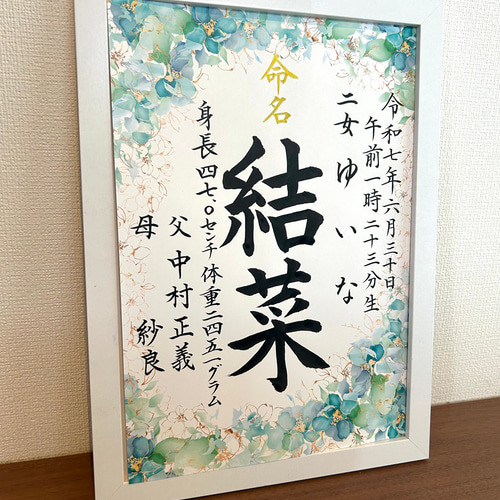 令和七年六月三十日
午前一時二十三分生
二女 ゆいな
命名
結菜
身長四七.〇センチ 体重二四五一グラム
父 中村正義
母 紗良